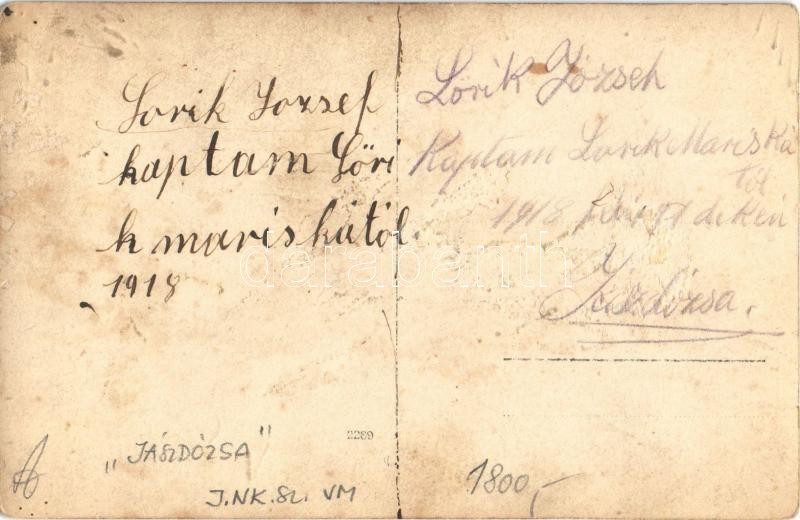 Lorik Jozsef
kaptam Löri
k mariskától
1918
Lörik József
Kaptam Lorik Mariská
tól
1918 11 dikén
Jászdózsa.
darabanth
2289
"JÁSZDÓZSA"
J.NK.SZ. VM
1800,-